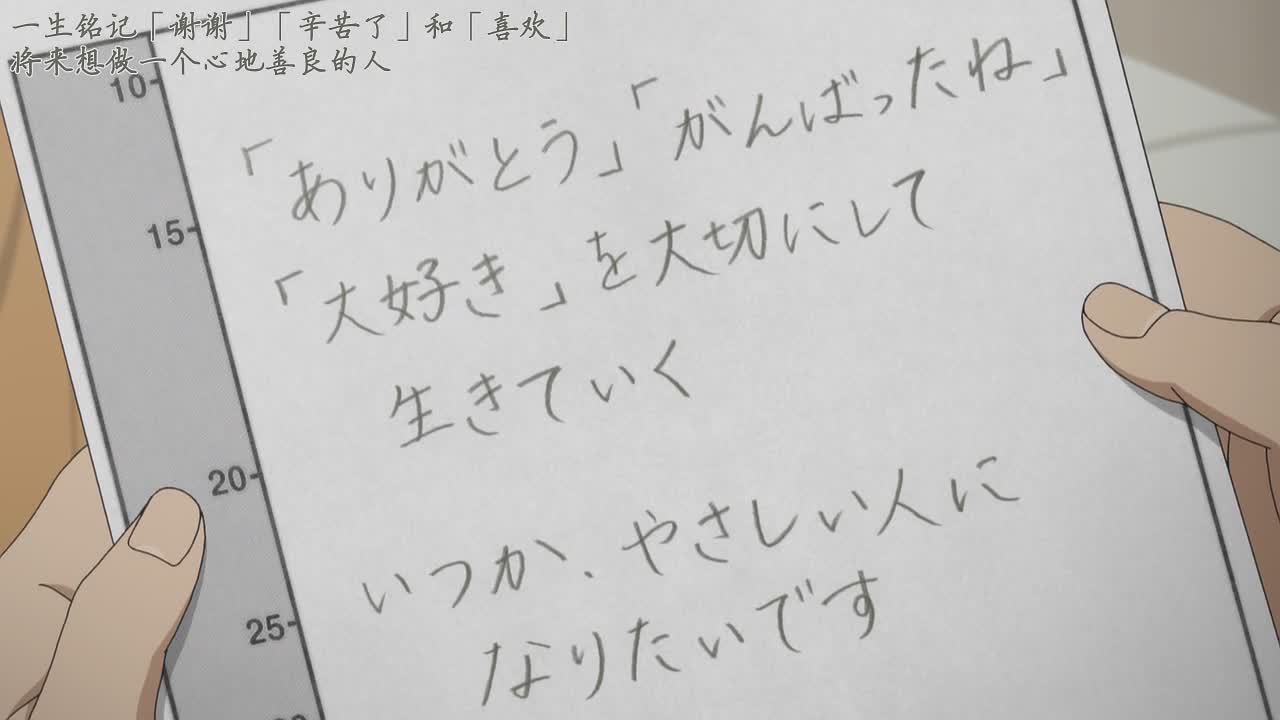 一生铭记「谢谢」「辛苦了」和「喜欢」
将来想做一个心地善良的人
10
「ありがとう」「がんばったね」
15
「大好き」を大切にして
生きていく
20
いつか、やさしい人に
25
なりたいです